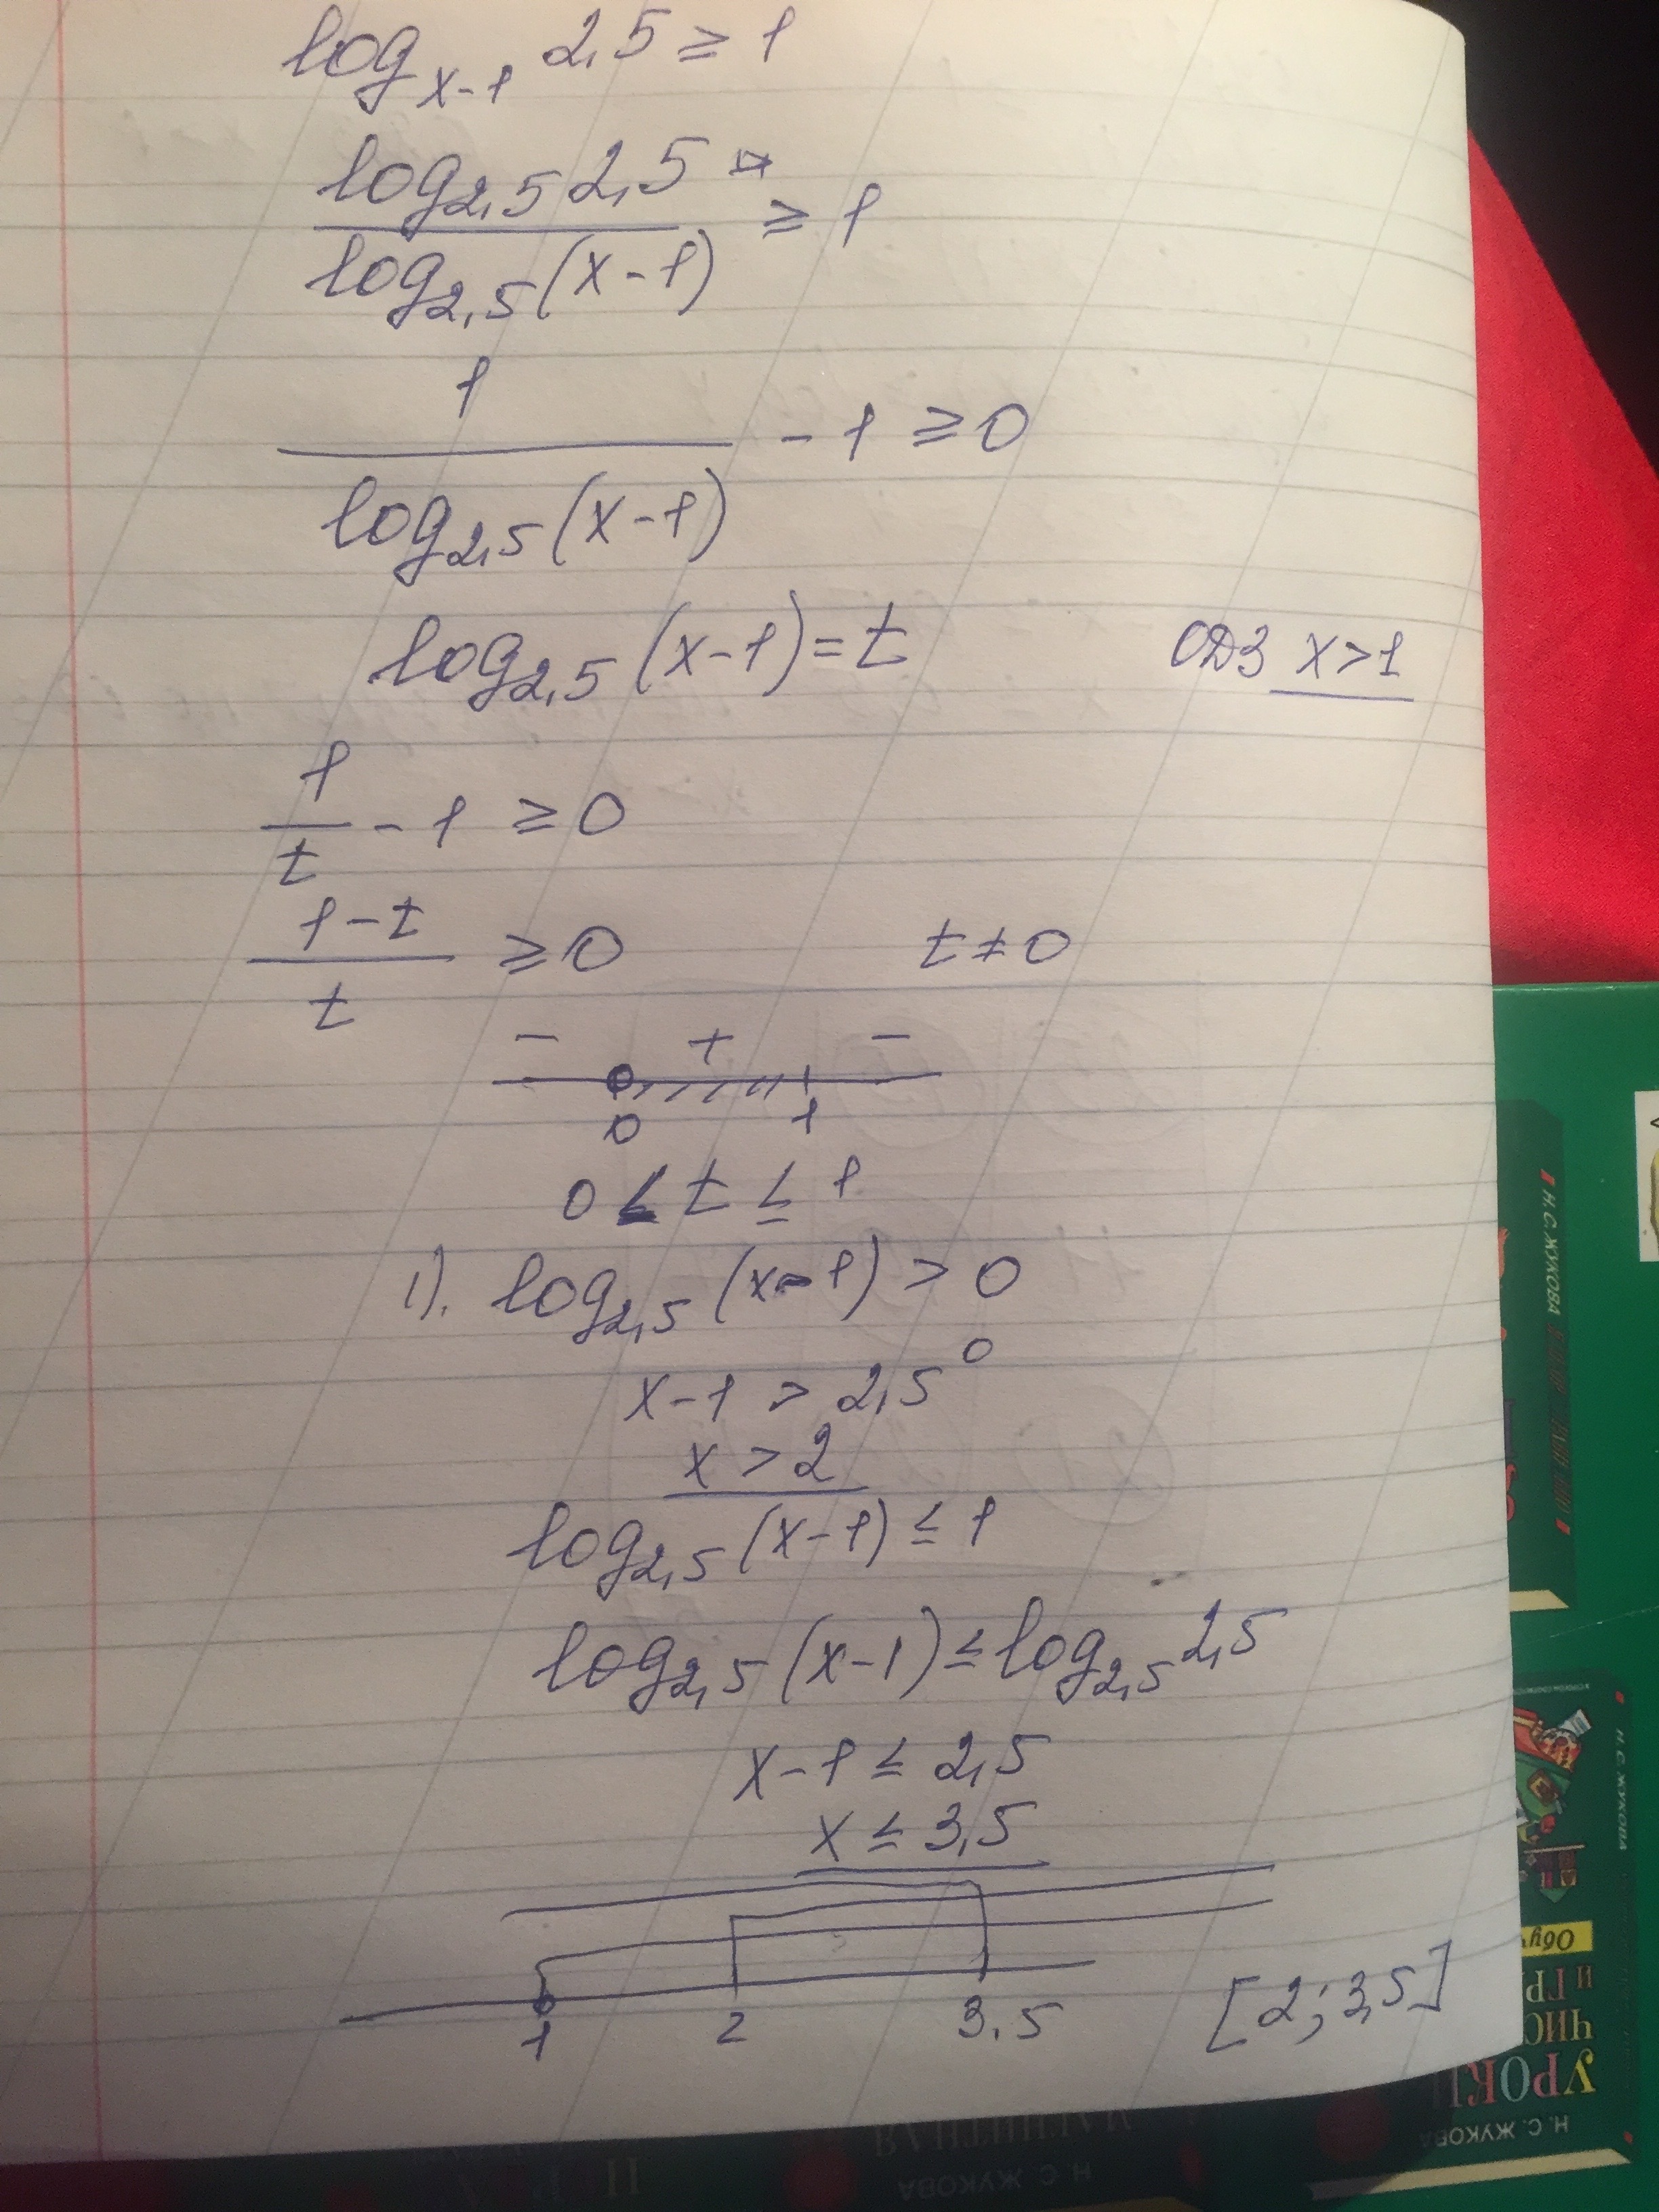 log_{x-1} 2,5 ≥ 1
\frac{log_{2,5} 2,5}{log_{2,5} (x-1)} ≥ 1
\frac{1}{log_{2,5} (x-1)} - 1 ≥ 0
log_{2,5} (x-1) = t ОДЗ x > 1
\frac{1}{t} - 1 ≥ 0
\frac{1-t}{t} ≥ 0 t ≠ 0
- + -
0 1
0 < t ≤ 1
1). log_{2,5} (x-1) > 0
x-1 > 2,5^0
x > 2
log_{2,5} (x-1) ≤ 1
log_{2,5} (x-1) ≤ log_{2,5} 2,5
x-1 ≤ 2,5
x ≤ 3,5
1 2 3.5 [2; 3,5]
Н.С.ЖУКОВА
Н.С.ЖУКОВА
УРОКИ
Н.С. ЖУКОВА
Н.С. ЖУКОВА